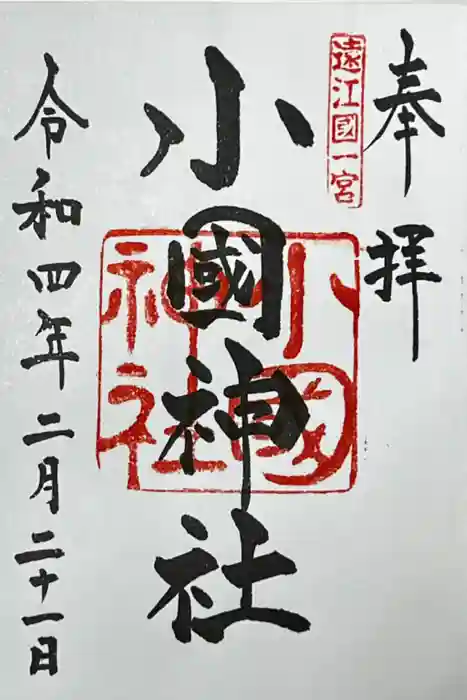 奉拝
遠江國一宮
小國神社
小國神社
令和四年二月二十一日